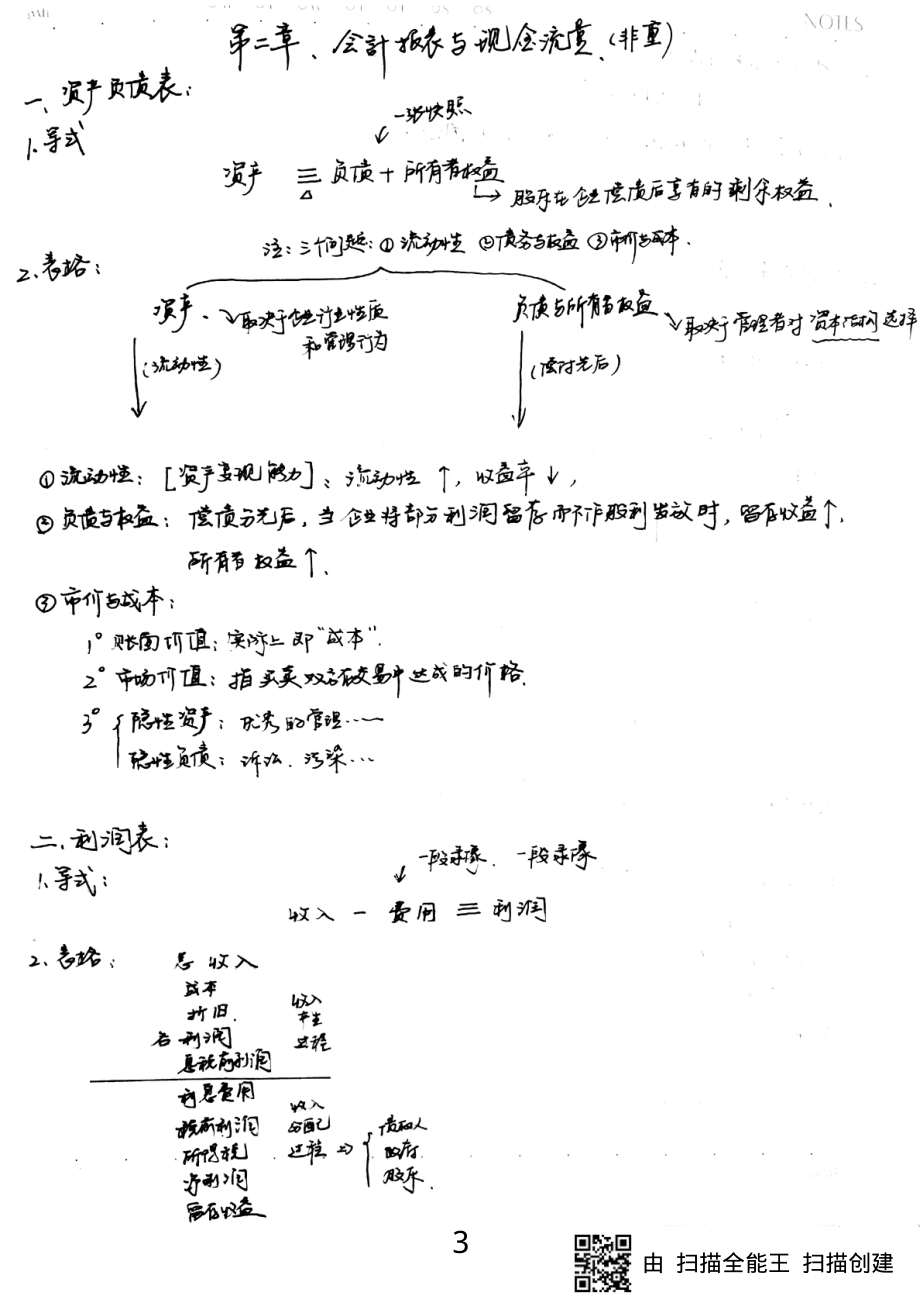 NOTES
第二章、会计报表与现金流量、(非重)
一、资产负债表:
一张快照
1、等式
资产 ≡ 负债 + 所有者权益
股东在企业偿债后享有的剩余权益.
注: 三个问题: ①流动性 ②债务与权益 ③市价与成本.
2、表格:
资产、 取决于企业行业性质和管理行为
负债与所有者权益 取决于管理者对资本结构选择
(流动性)
(偿付先后)
①流动性: [资产变现能力]: 流动性↑, 收益率↓,
②负债与权益: 偿债分先后, 当企业将部分利润留存而不作股利发放时, 留存收益↑.
所有者权益↑.
③市价与成本:
1° 账面价值: 实际上即"成本".
2° 市场价值: 指买卖双方在交易中达成的价格.
3° 隐性资产: 优秀的管理……
隐性负债: 诉讼、污染…
二、利润表:
一段录像. 一段录像
1、等式:
收入 - 费用 ≡ 利润
2、表格: 总收入
成本
折旧. 收入产生过程
利润
息税前利润
利息费用
税前利润 收入分配过程 ⇒ 债权人
所得税 政府.
净利润 股东.
留存收益
3
由 扫描全能王 扫描创建